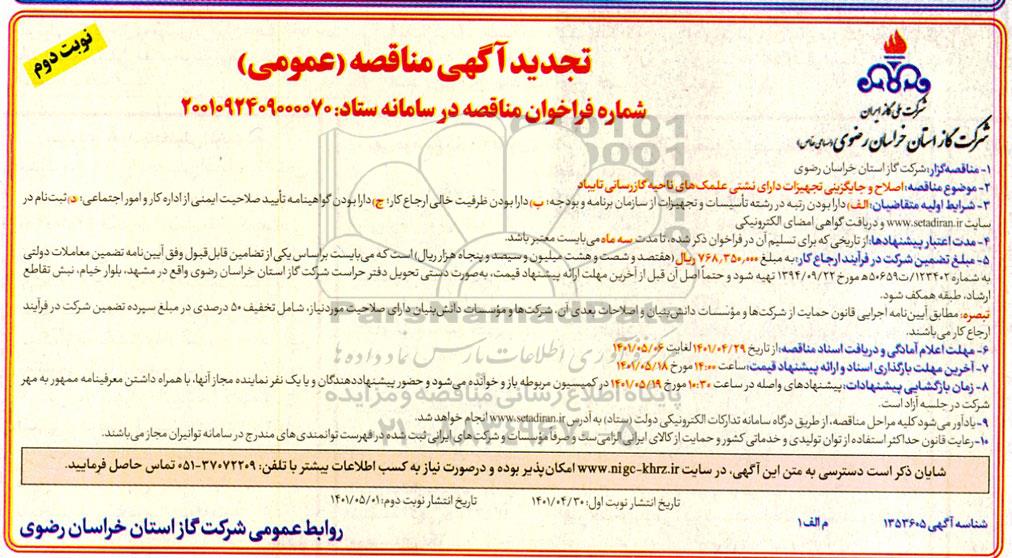 نوبت دوم
تجدید آگهی مناقصه (عمومی)
شماره فراخوان مناقصه در سامانه ستاد: ۲۰۰۱۰۹۲۴۰۹۰۰۰۰۷۰
شرکت ملی گاز ایران
شرکت گاز استان خراسان رضوی (سهامی خاص)
۱- مناقصه‌گزار: شرکت گاز استان خراسان رضوی
۲- موضوع مناقصه: اصلاح و جایگزینی تجهیزات دارای نشتی علمک‌های ناحیه گازرسانی تایباد
۳- شرایط اولیه متقاضیان: الف) دارا بودن رتبه در رشته تأسیسات و تجهیزات از سازمان برنامه و بودجه؛ ب) دارا بودن ظرفیت خالی ارجاع کار؛ ج) دارا بودن گواهینامه تأیید صلاحیت ایمنی از اداره کار و امور اجتماعی؛ د) ثبت‌نام در
سایت www.setadiran.ir و دریافت گواهی امضای الکترونیکی
۴- مدت اعتبار پیشنهادها: از تاریخی که برای تسلیم آن در فراخوان ذکر شده، تا مدت سه ماه می‌بایست معتبر باشد.
۵- مبلغ تضمین شرکت در فرآیند ارجاع کار: به مبلغ ۷۶۸,۳۵۰,۰۰۰ ریال (هفتصد و شصت و هشت میلیون و سیصد و پنجاه هزار ریال) است که می‌بایست براساس یکی از تضامین قابل‌قبول وفق آیین‌نامه تضمین معاملات دولتی
به شماره ۱۲۳۴۰۲/ت۵۰۶۵۹ه‍ مورخ ۱۳۹۴/۰۹/۲۲ تهیه شود و حتماً اصل آن قبل از آخرین مهلت ارائه پیشنهاد قیمت، به‌صورت دستی تحویل دفتر حراست شرکت گاز استان خراسان رضوی واقع در مشهد، بلوار خیام، نبش تقاطع
ارشاد، طبقه همکف شود.
تبصره: مطابق آیین‌نامه اجرایی قانون حمایت از شرکت‌ها و مؤسسات دانش‌بنیان و اصلاحات بعدی آن، شرکت‌ها و مؤسسات دانش‌بنیان دارای صلاحیت موردنیاز، شامل تخفیف ۵۰ درصدی در مبلغ سپرده تضمین شرکت در فرآیند
ارجاع کار می‌باشند.
۶- مهلت اعلام آمادگی و دریافت اسناد مناقصه: از تاریخ ۱۴۰۱/۰۴/۲۹ لغایت ۱۴۰۱/۰۵/۰۶
۷- آخرین مهلت بارگذاری اسناد و ارائه پیشنهاد قیمت: ساعت ۱۴:۰۰ مورخ ۱۴۰۱/۰۵/۱۸
۸- زمان بازگشایی پیشنهادات: پیشنهادهای واصله در ساعت ۱۰:۳۰ مورخ ۱۴۰۱/۰۵/۱۹ در کمیسیون مربوطه باز و خوانده می‌شود و حضور پیشنهاددهندگان و یا یک نفر نماینده مجاز آنها، با همراه داشتن معرفینامه ممهور به مهر
شرکت در جلسه آزاد است.
۹- یادآور می‌شود کلیه مراحل مناقصه، از طریق درگاه سامانه تدارکات الکترونیکی دولت (ستاد) به آدرس www.setadiran.ir انجام خواهد شد.
۱۰- رعایت قانون حداکثر استفاده از توان تولیدی و خدماتی کشور و حمایت از کالای ایرانی الزامی‌ست و صرفاً مؤسسات و شرکت‌های ایرانی ثبت شده در فهرست توانمندی‌های مندرج در سامانه توانیران مجاز می‌باشند.
شایان ذکر است دسترسی به متن این آگهی، در سایت www.nigc-khrz.ir امکان‌پذیر بوده و درصورت نیاز به کسب اطلاعات بیشتر با تلفن: ۳۷۰۷۲۲۰۹-۰۵۱ تماس حاصل فرمایید.
تاریخ انتشار نوبت اول: ۱۴۰۱/۰۴/۳۰ تاریخ انتشار نوبت دوم: ۱۴۰۱/۰۵/۰۱
شناسه آگهی ۱۳۵۳۶۰۵ م الف ۱
روابط عمومی شرکت گاز استان خراسان رضوی
ParsNamadData
پایگاه اطلاع رسانی مناقصه و مزایده